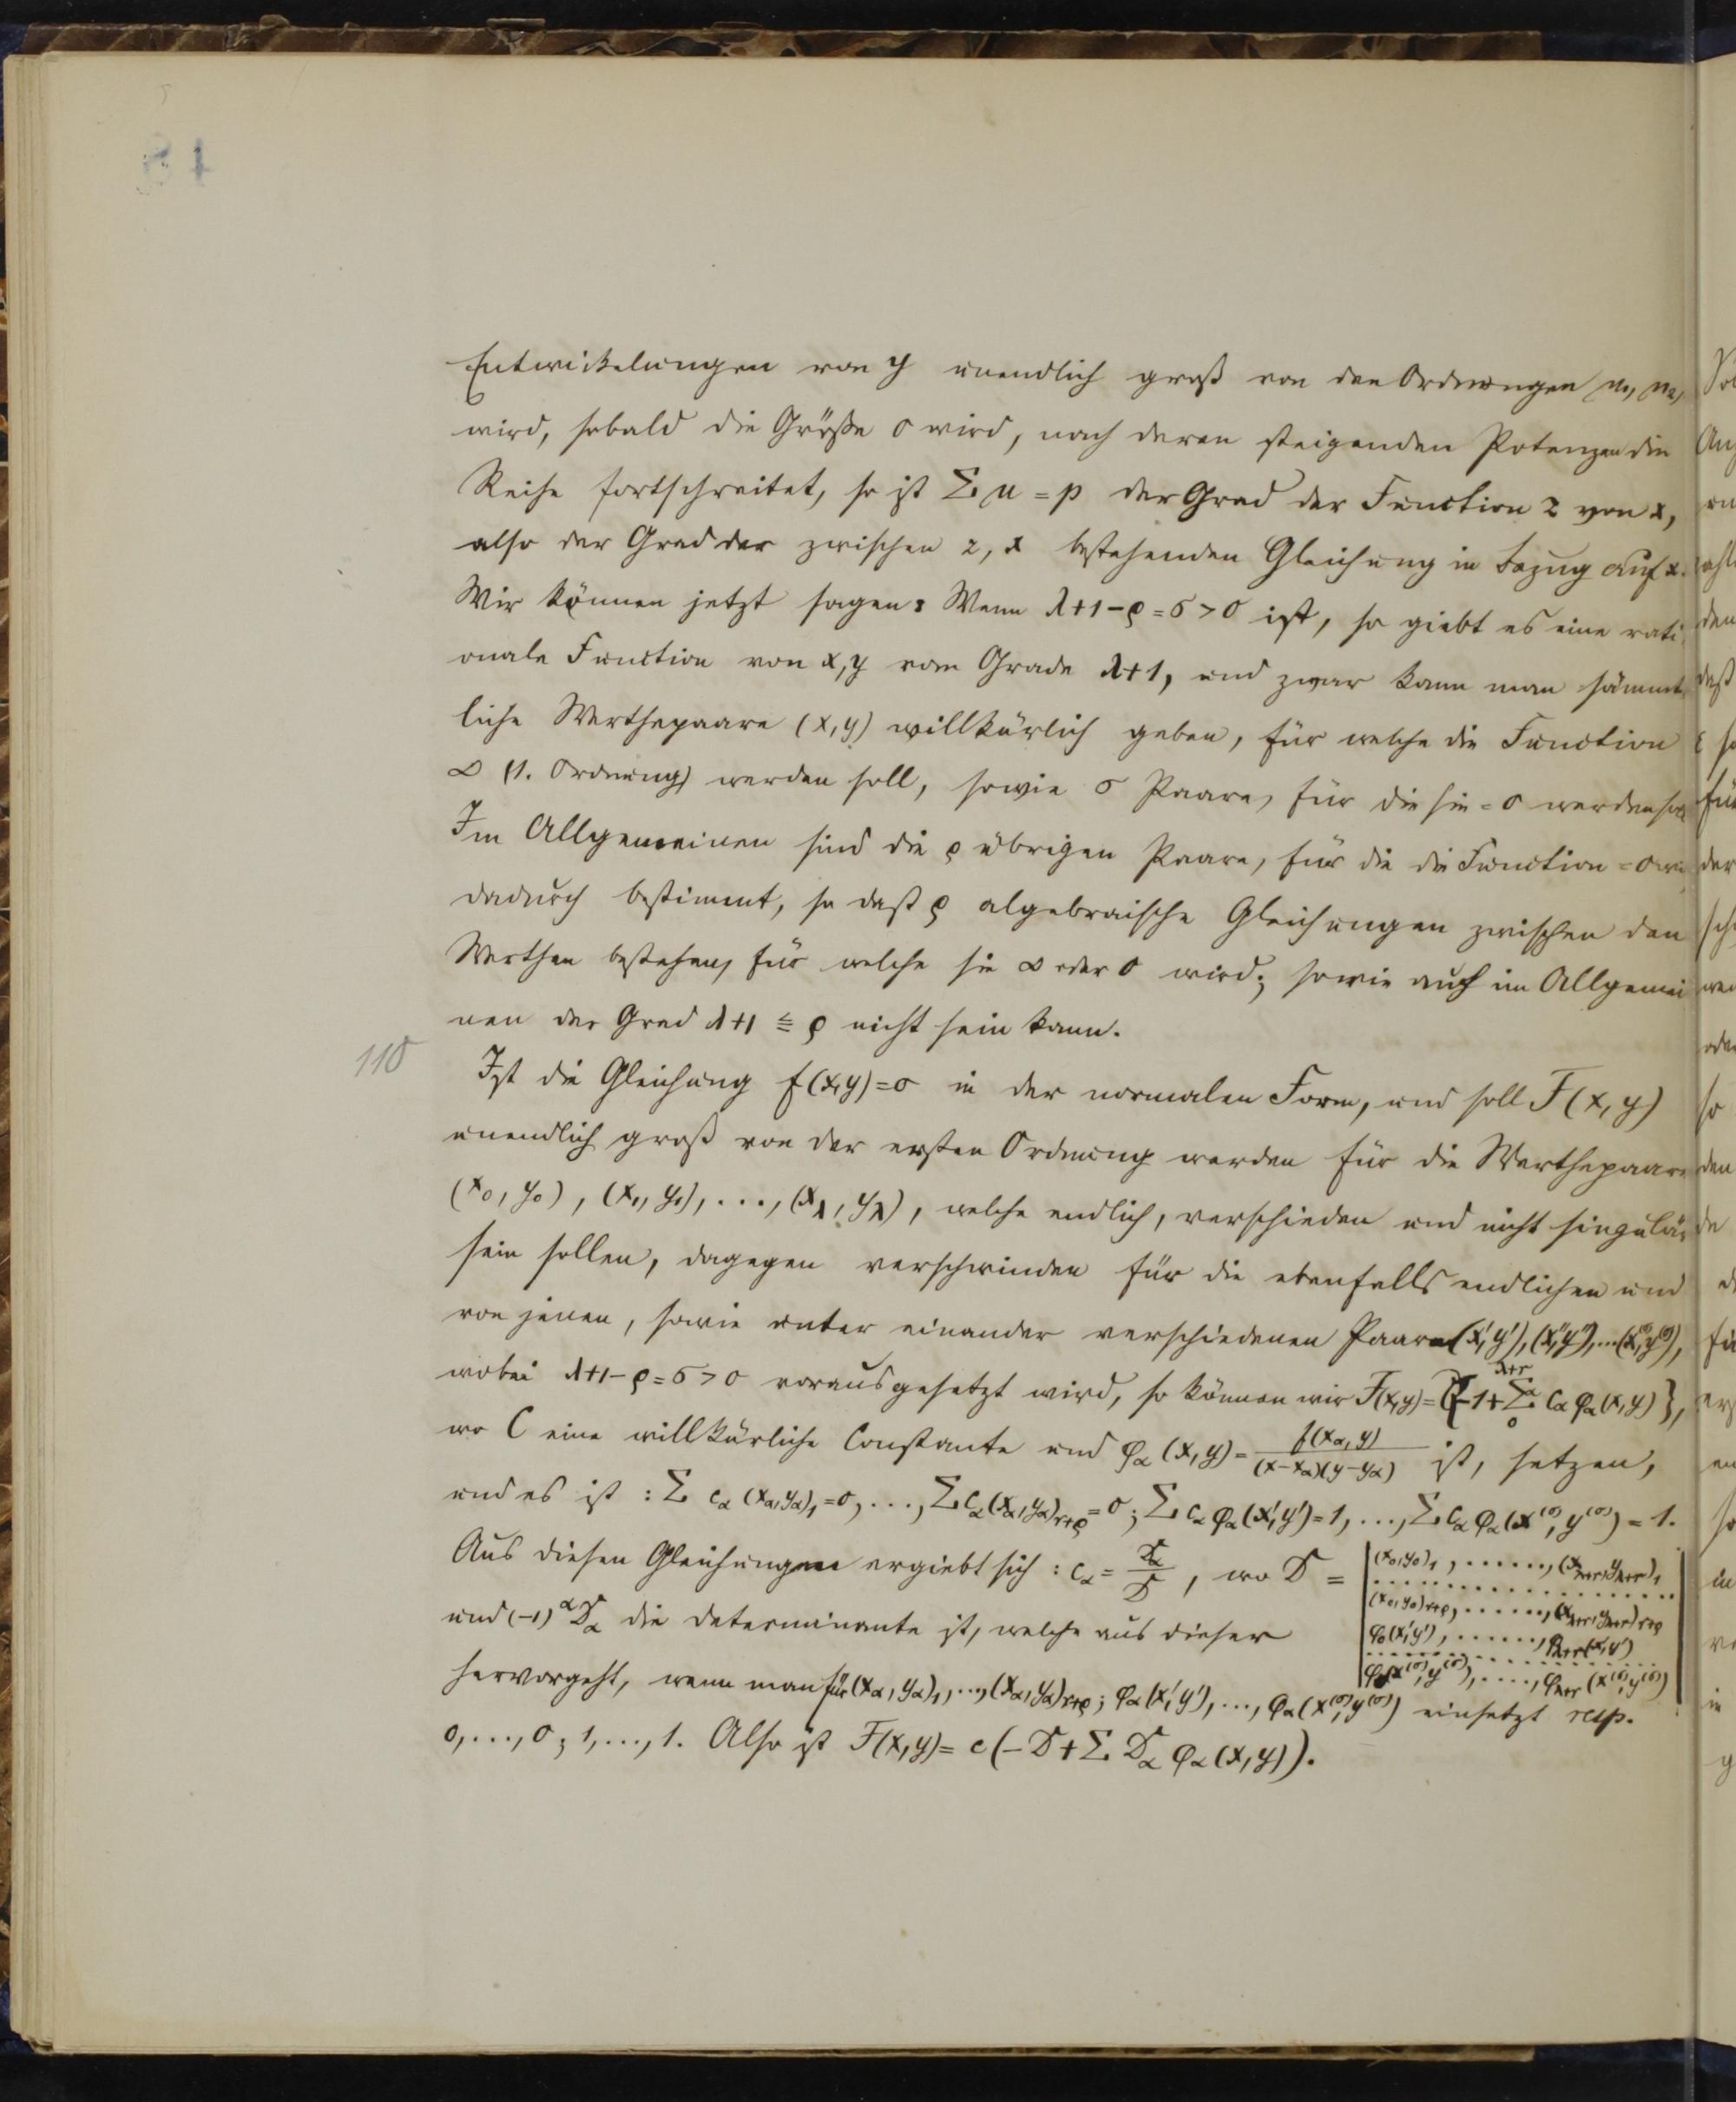 Entwickelungen von y unendlich groß von den Ordnungen μ₁, μ₂,
wird, sobald die Größe 0 wird, nach deren steigenden Potenzen die
Reihe fortschreitet, so ist Σμ = p der Grad der Function z von x,
also der Grad der zwischen z, x bestehenden Gleichung in Bezug auf x.
Wir können jetzt sagen: Wenn λ+1-ρ=σ>0 ist, so giebt es eine rati
onale Function von x,y vom Grade λ+1, und zwar kann man sämmt
liche Werthepaare (x,y) willkürlich geben, für welche die Function
∞ (1. Ordnung) werden soll, sowie σ Paare, für die sie = 0 werden soll
Im Allgemeinen sind die ρ übrigen Paare, für die die Function = 0
dadurch bestimmt, so daß ρ algebraische Gleichungen zwischen den
Werthen bestehen, für welche sie ∞ oder 0 wird; sowie auch im Allgemei
nen der Grad λ+1 ≦ ρ nicht sein kann.
110
Ist die Gleichung f(x,y)=0 in der normalen Form, und soll F(x,y)
unendlich groß von der ersten Ordnung werden für die Werthepaare
(x₀,y₀), (x₁,y₁), ..., (x_λ,y_λ), welche endlich, verschieden und nicht singulär
sein sollen, dagegen verschwinden für die ebenfalls endlichen und
von jenen, sowie unter einander verschiedenen Paare (x',y'), (x'',y''),...(x^(σ),y^(σ)),
wobei λ+1-ρ=σ>0 vorausgesetzt wird, so können wir F(x,y)= C{-1+Σ₀^{λ+r} c_α φ_α(x,y)},
wo C eine willkürliche Constante und φ_α(x,y)= f(x_α,y)/((x-x_α)(y-y_α)) ist, setzen,
und es ist: Σ c_α (x_α,y_α)₁=0, ..., Σ c_α (x_α,y_α)_{r+ρ}=0; Σ c_α φ_α(x',y')=1, ..., Σ c_α φ_α(x^(σ),y^(σ))=1.
Aus diesen Gleichungen ergiebt sich: c_α = D_α/D, wo D = | (x₀,y₀)₁, ......, (x_{λ+r},y_{λ+r})₁
(x₀,y₀)_{r+ρ}, ......, (x_{λ+r},y_{λ+r})_{r+ρ}
φ₀(x',y'), ......, φ_{λ+r}(x',y')
φ₀(x^(σ),y^(σ)), ....., φ_{λ+r}(x^(σ),y^(σ)) |
und (-1)^α D_α die Determinante ist, welche aus dieser
hervorgeht, wenn man für (x_α,y_α)₁, ..., (x_α,y_α)_{r+ρ}; φ_α(x',y'), ..., φ_α(x^(σ),y^(σ)) einsetzt resp.
0, ..., 0; 1, ..., 1. Also ist F(x,y)= c(-D+Σ D_α φ_α(x,y)).